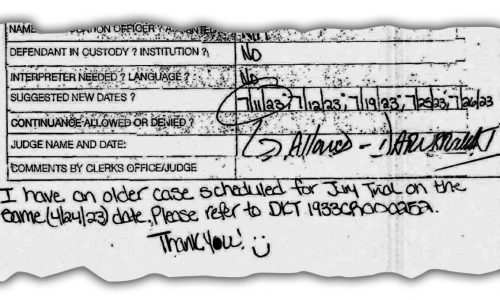 NAME OFFICER ?
DEFENDANT IN CUSTODY ? INSTITUTION ? No
INTERPRETER NEEDED ? LANGUAGE ? No
SUGGESTED NEW DATES ? 7/11/23; 7/12/23; 7/19/23; 7/25/23; 7/26/23
CONTINUANCE ALLOWED OR DENIED ? Allowed -
JUDGE NAME AND DATE:
COMMENTS BY CLERKS OFFICE/JUDGE
I have an older case scheduled for Jury Trial on the
same (4/24/23) date. Please refer to DKT 1933CR000252.
Thank you! :)